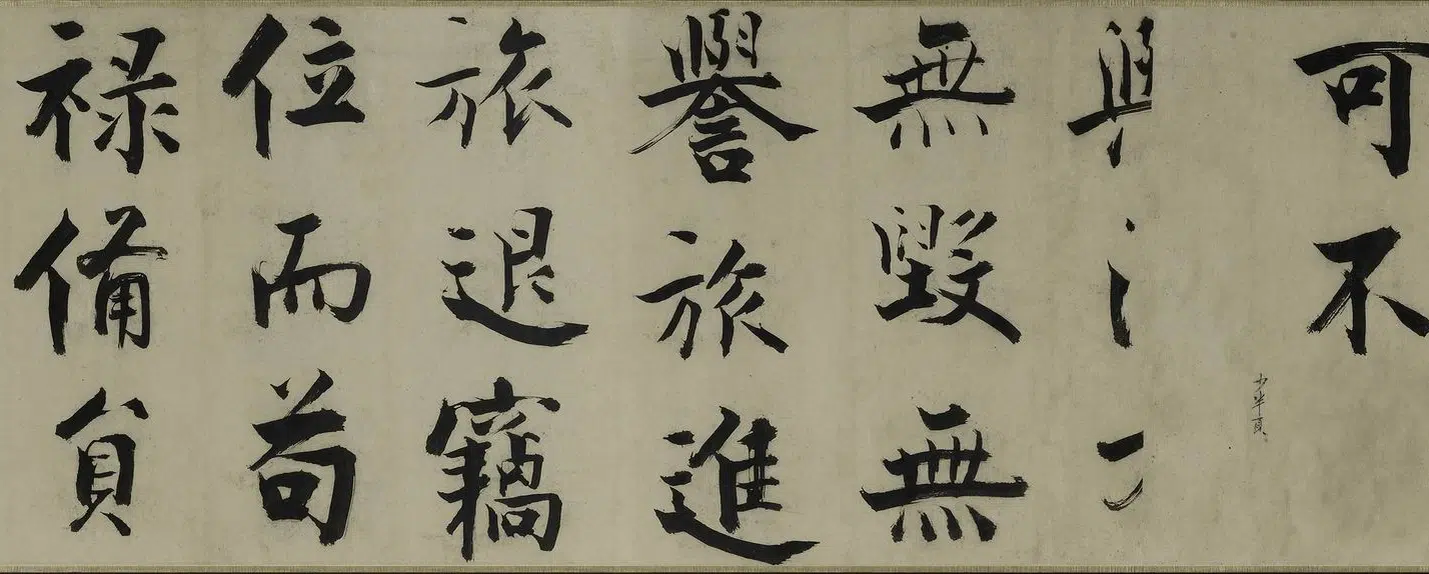 可不
少半頁
無毀無
譽旅進
旅退竊
位而苟
禄備員